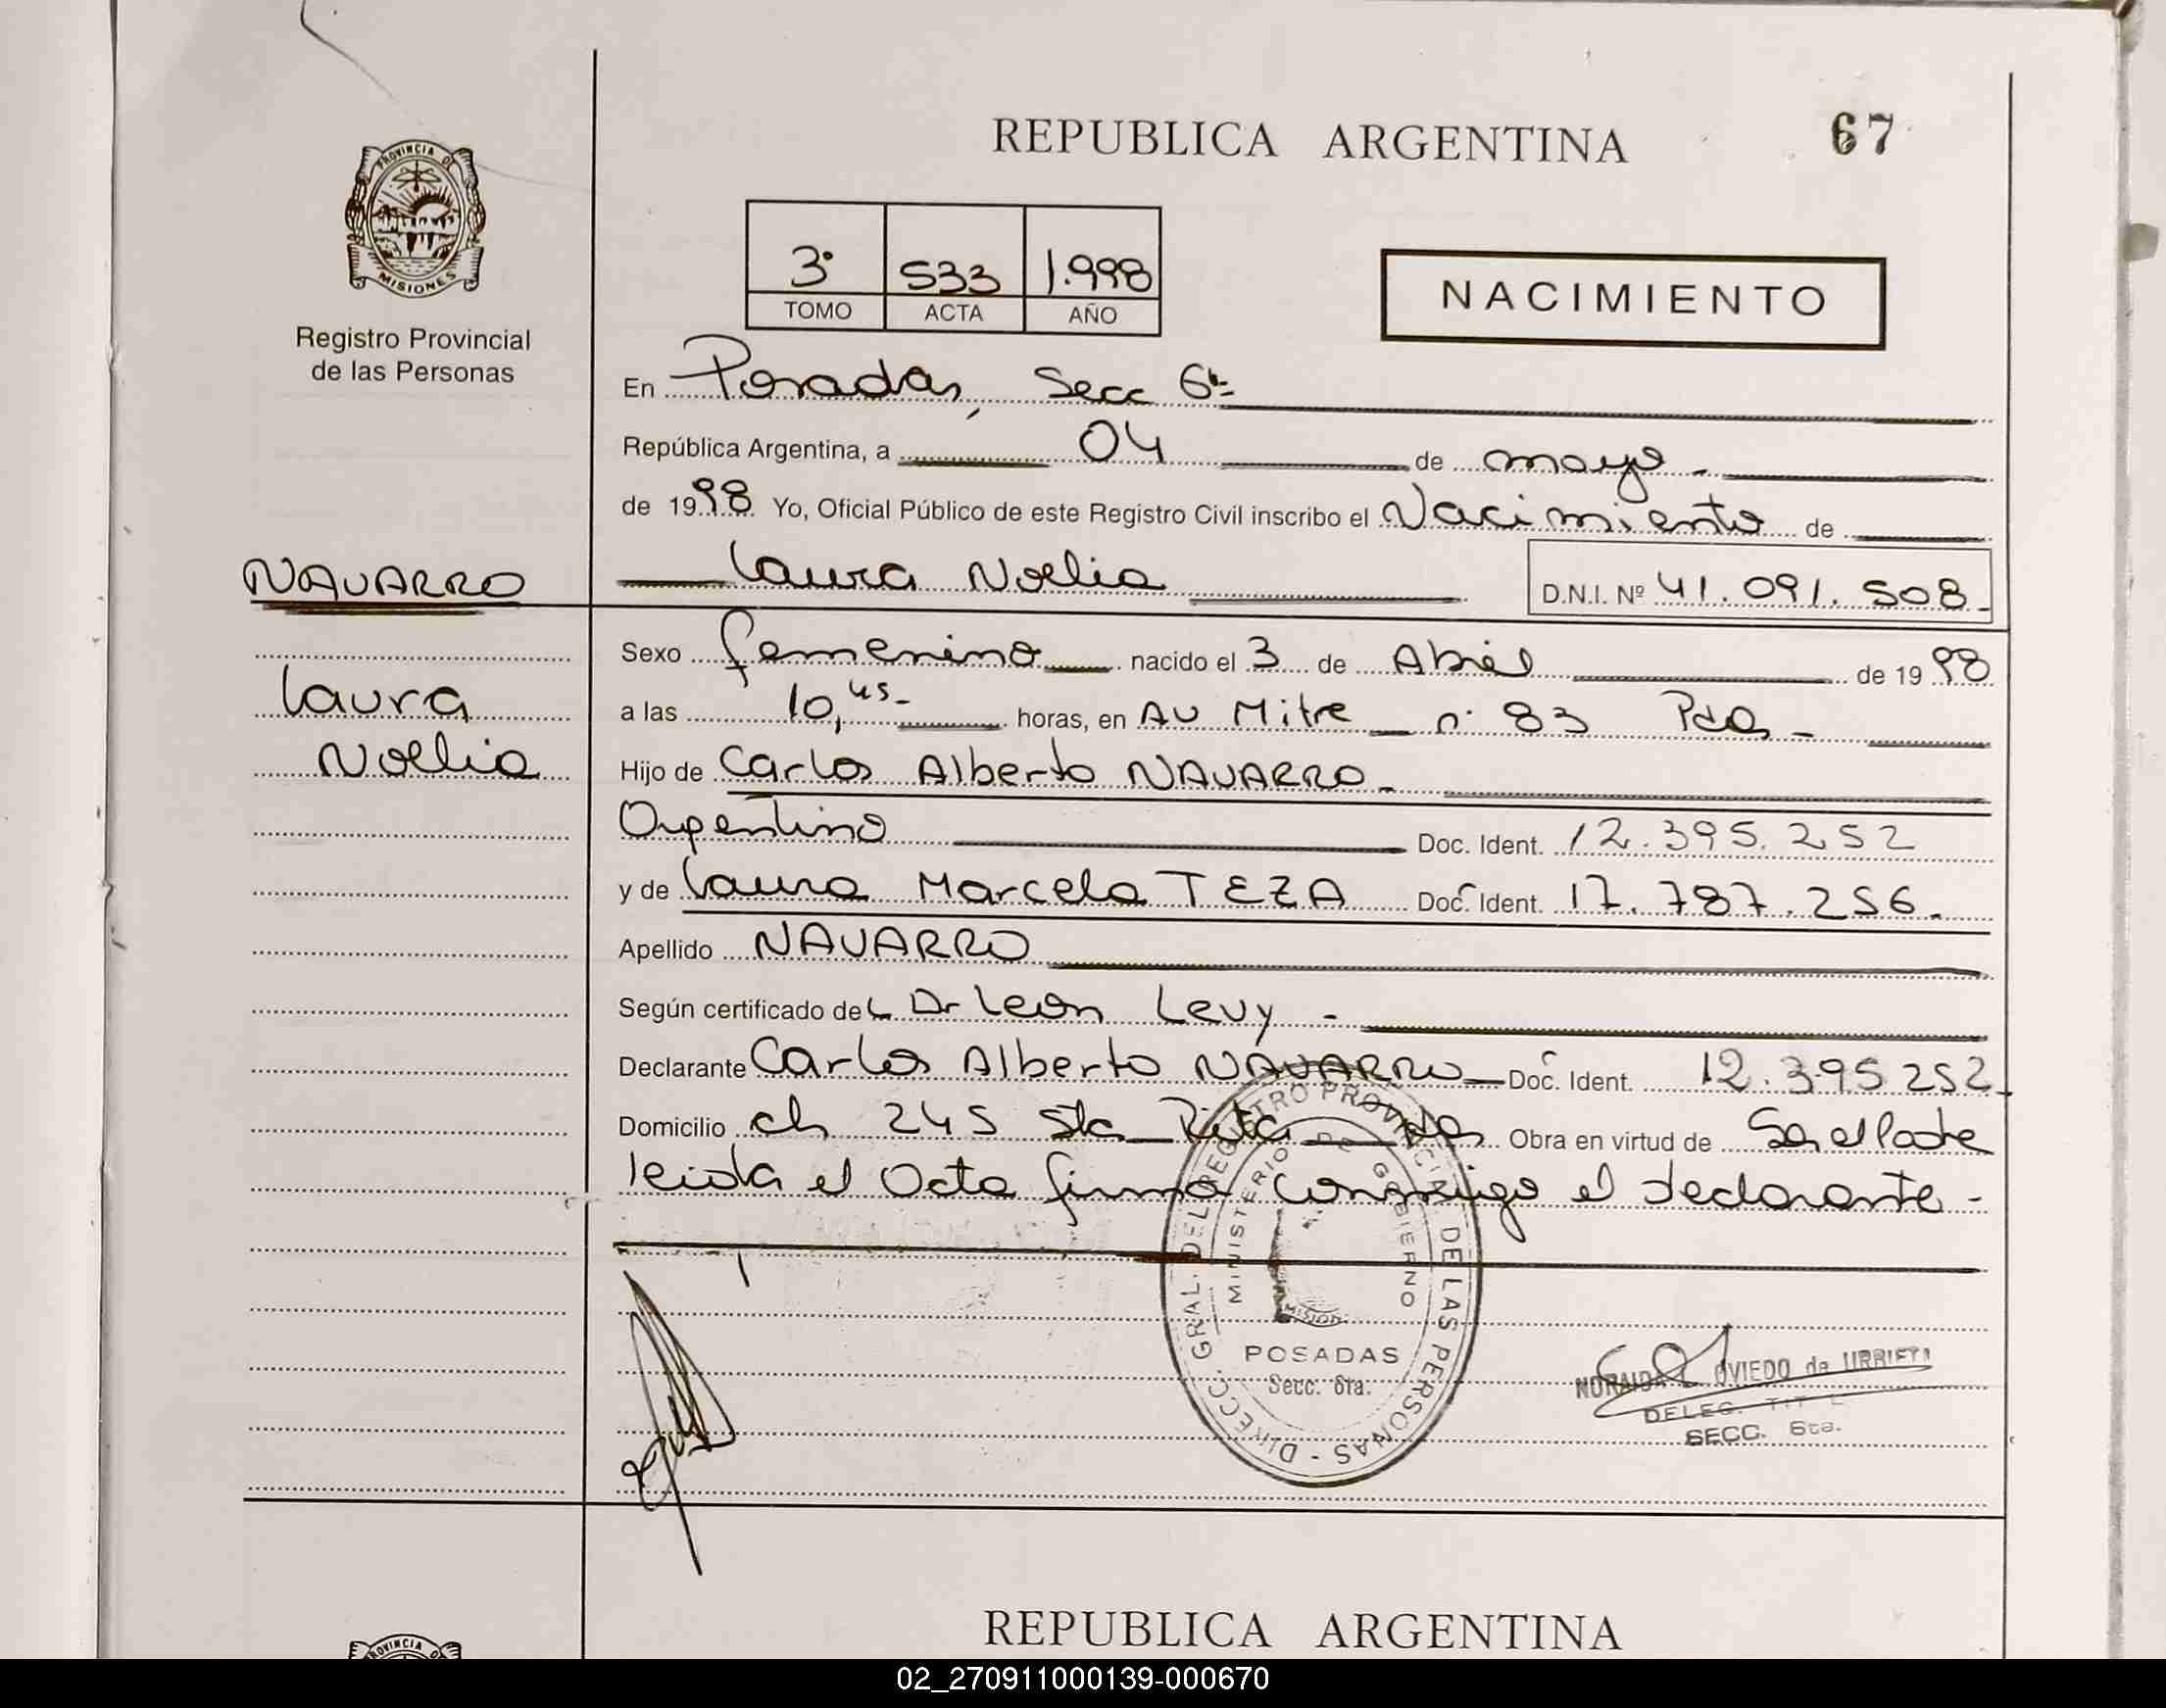 REPUBLICA ARGENTINA
67
PROVINCIA DE
MISIONES
Registro Provincial
de las Personas
3º 533 1.998
TOMO ACTA AÑO
NACIMIENTO
En Posadas, Secc 6ta
República Argentina, a 04 de mayo -
de 1998 Yo, Oficial Público de este Registro Civil inscribo el Nacimiento de
NAVARRO
Laura Noelia D.N.I. Nº 41.091.508-
Sexo femenino nacido el 3 de Abril de 1998
Laura
a las 10,45- horas, en AV Mitre nº 83 Pdas -
Noelia
Hijo de Carlos Alberto NAVARRO -
Argentino Doc. Ident. 12.395.252
y de Laura Marcela TEZA Doc. Ident. 17.787.256.
Apellido NAVARRO
Según certificado de L Dr Leon Levy -
Declarante Carlos Alberto NAVARRO Doc. Ident. 12.395252
Domicilio ch 245 Sta Rita Pdas Obra en virtud de Ser el Padre
leida el Acta firma conmigo el declarante -
DIRECC. GRAL. DEL REGISTRO PROVINCIAL DE LAS PERSONAS -
MINISTERIO DE GOBIERNO
POSADAS
Secc. 6ta.
NORAIDA OVIEDO de URRIETA
DELEG.
SECC. 6ta.
REPUBLICA ARGENTINA
PROVINCIA DE
02_270911000139-000670